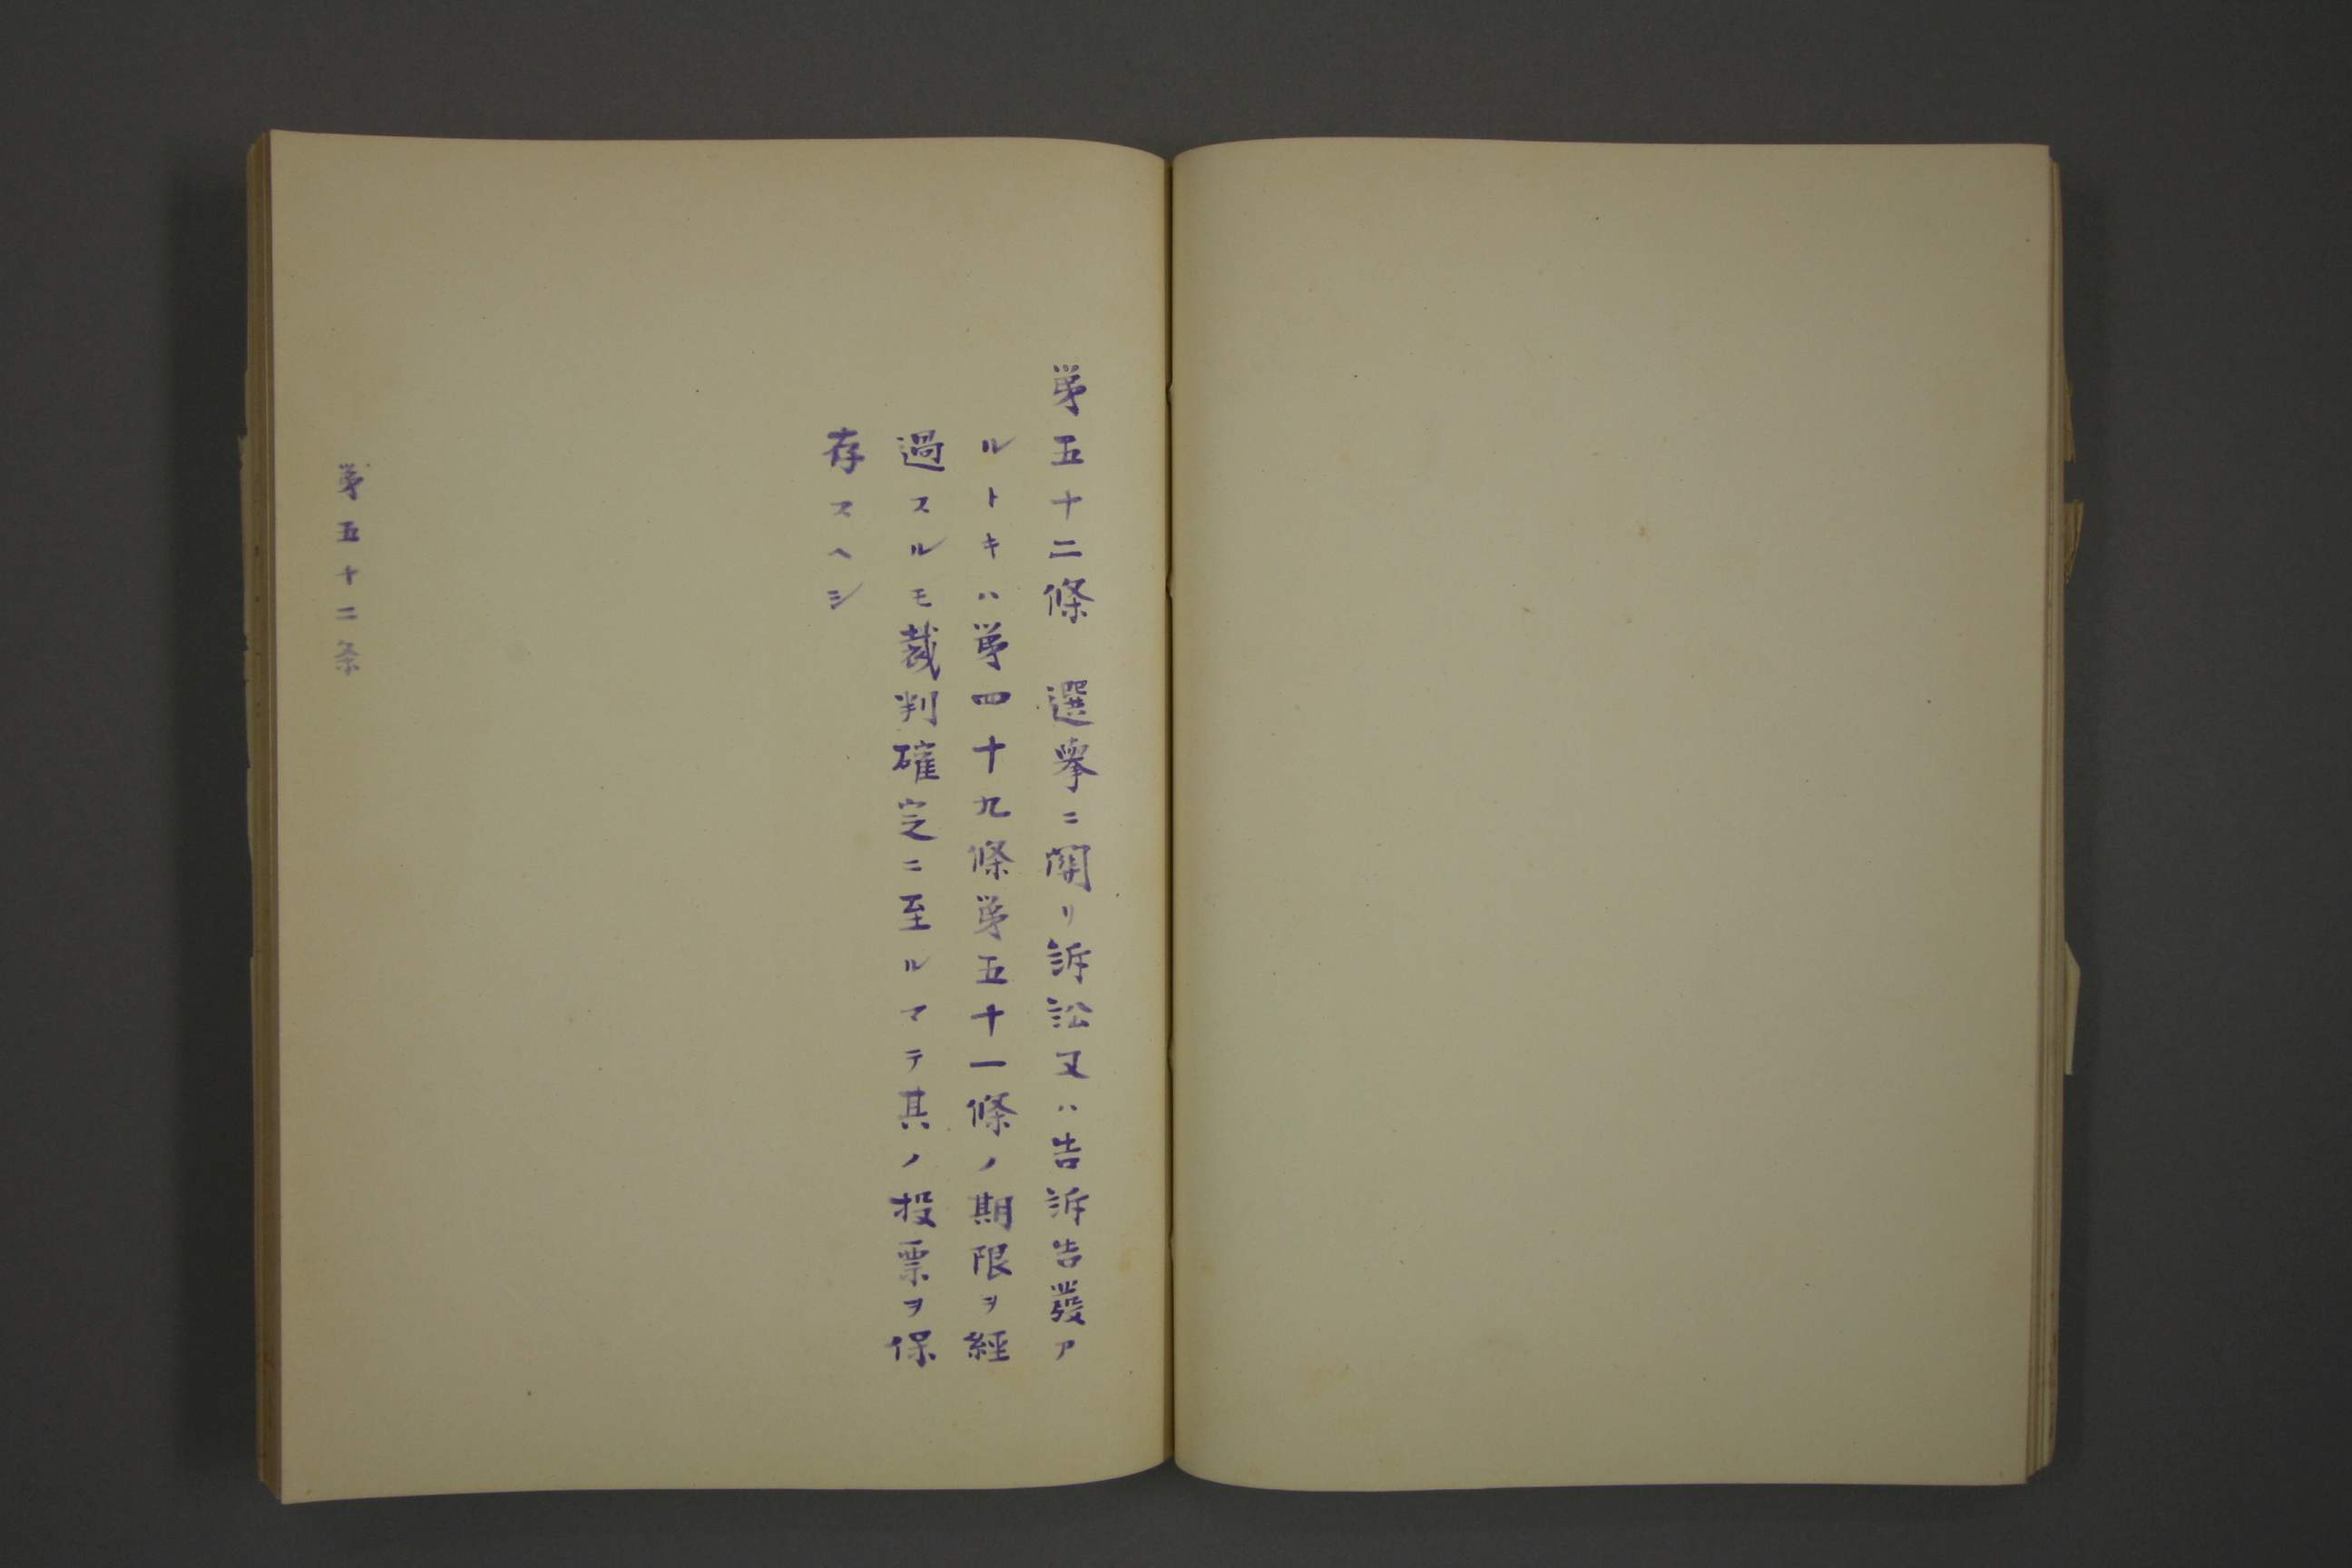 第五十二條　選擧ニ關リ訴訟又ハ告訴告發ア
ルトキハ第四十九條第五十一條ノ期限ヲ經
過スルモ裁判確定ニ至ルマテ其ノ投票ヲ保
存スヘシ
第五十二条